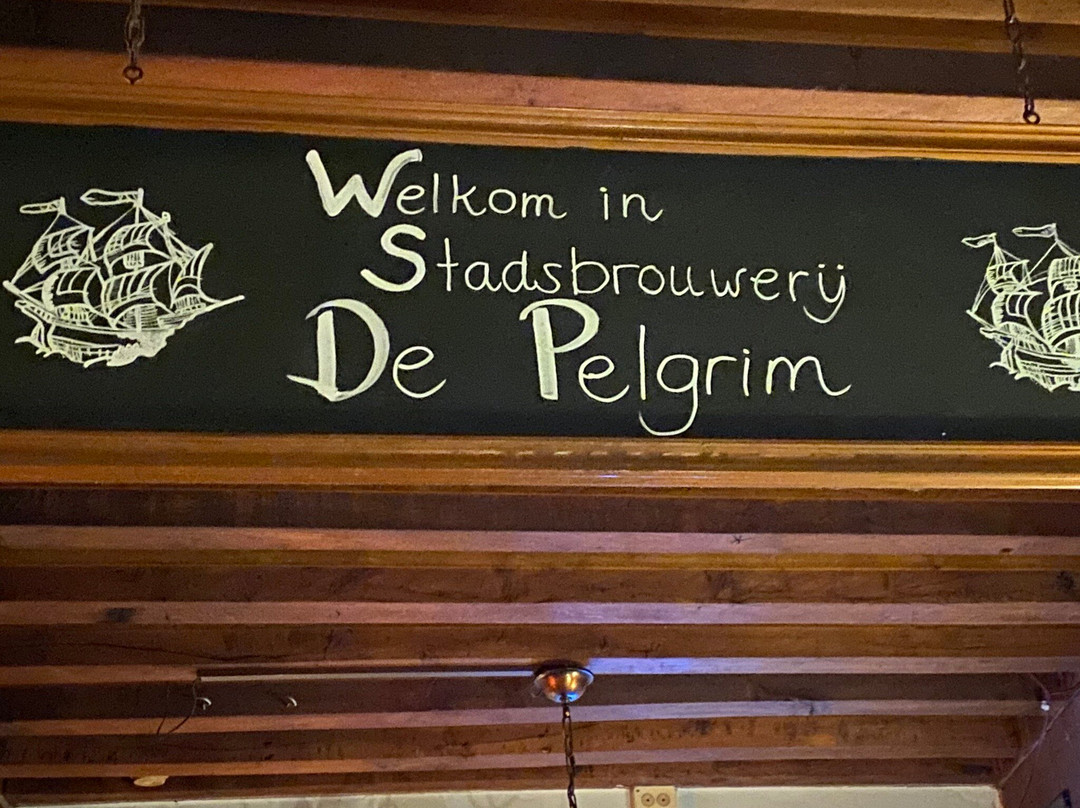 Welkom in
Stadsbrouwerij
De Pelgrim